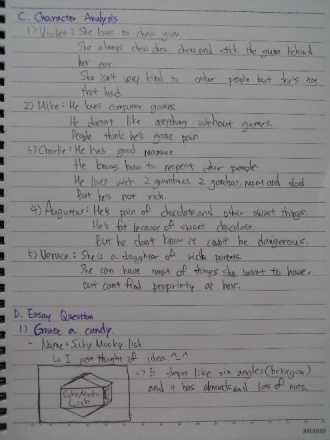 C. Character Analysis
1) Violet: She loves to chew gum.
She always chew chew chew and stick the gum behind
her ear.
She isn't very kind to other people but she's not
that bad.
2) Mike: He loves computer games.
He doesn't like anything without games.
People think he's game pain.
3) Charlie: He has good manner.
He knows how to respect other people.
He lives with 2 grandmas, 2 grandpas, mom and dad
But he's not rich.
4) Augustus: He's pain of chocolate and other sweet things.
He's fat because of sweet chocolate.
But he don't know it can't be dangerous.
5) Veruca: She is a daughter of rich parents.
She can have most of things she want to have,
but can't find propriety at her.
D. Essay Question
1) Create a candy.
- Name: Silky Mooky lish
↳ I just thought of idea ^-^
=> It shapes like six angles (hexagon)
and it has almonds and lots of nuts.
Silky Mooky
Lish